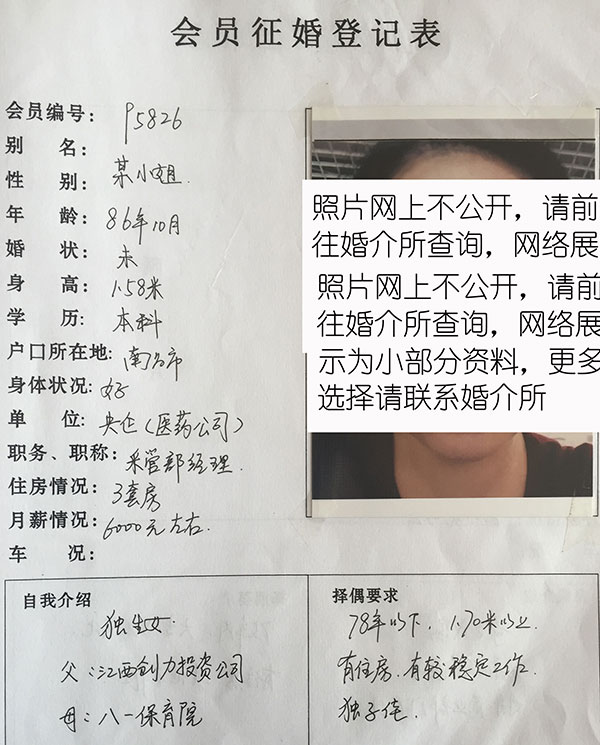 会员征婚登记表
会员编号: P5826
别 名: 某小姐.
性 别:
年 龄: 86年10月
婚 状: 未
身 高: 1.58米
学 历: 本科
户口所在地: 南昌市
身体状况: 好
单 位: 央企(医药公司)
职务、职称: 采管部经理.
住房情况: 3套房
月薪情况: 6000元左右.
车 况:
照片网上不公开，请前
往婚介所查询，网络展
照片网上不公开，请前
往婚介所查询，网络展
示为小部分资料，更多
选择请联系婚介所
自我介绍
独生女.
父:江西创力投资公司
母:八一保育院
择偶要求
78年以下. 1.70米以上
有住房.有较稳定工作.
独子佳.